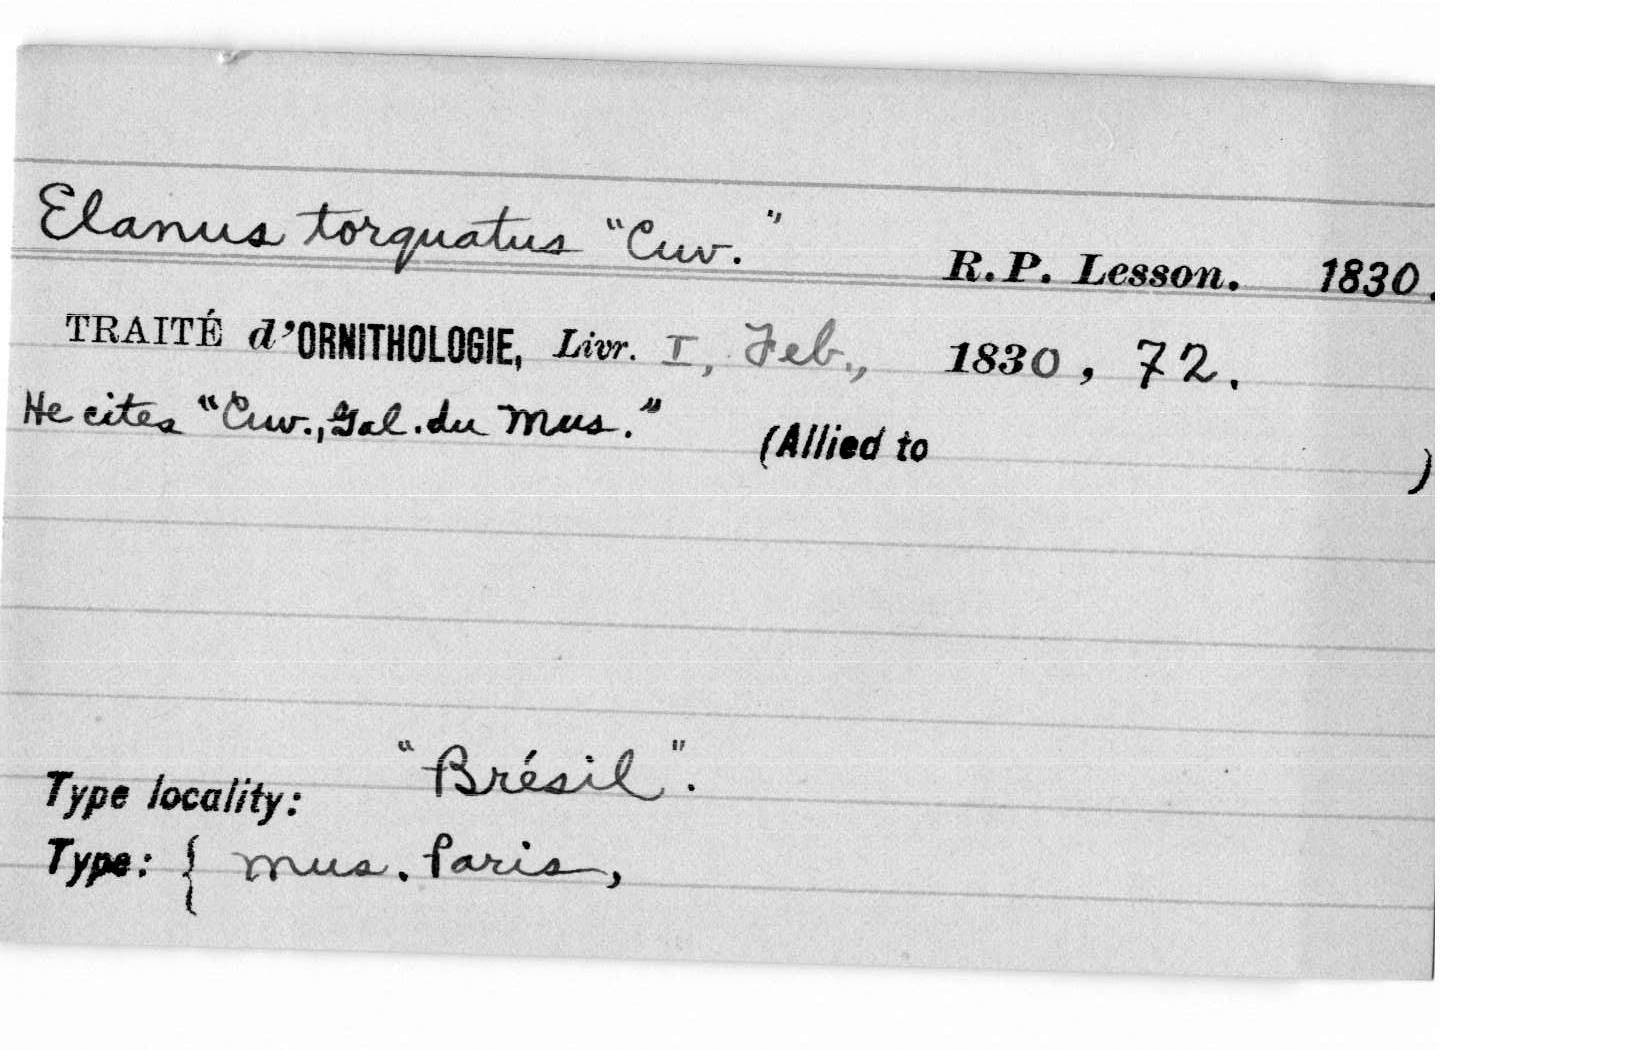 Elanus torquatus "Cuv." R. P. Lesson. 1830.
TRAITÉ d'ORNITHOLOGIE, Livr. I, Feb., 1830, 72.
He cites "Cuv., Gal. du Mus." (Allied to )
Type locality: "Brésil".
Type: { Mus. Paris,